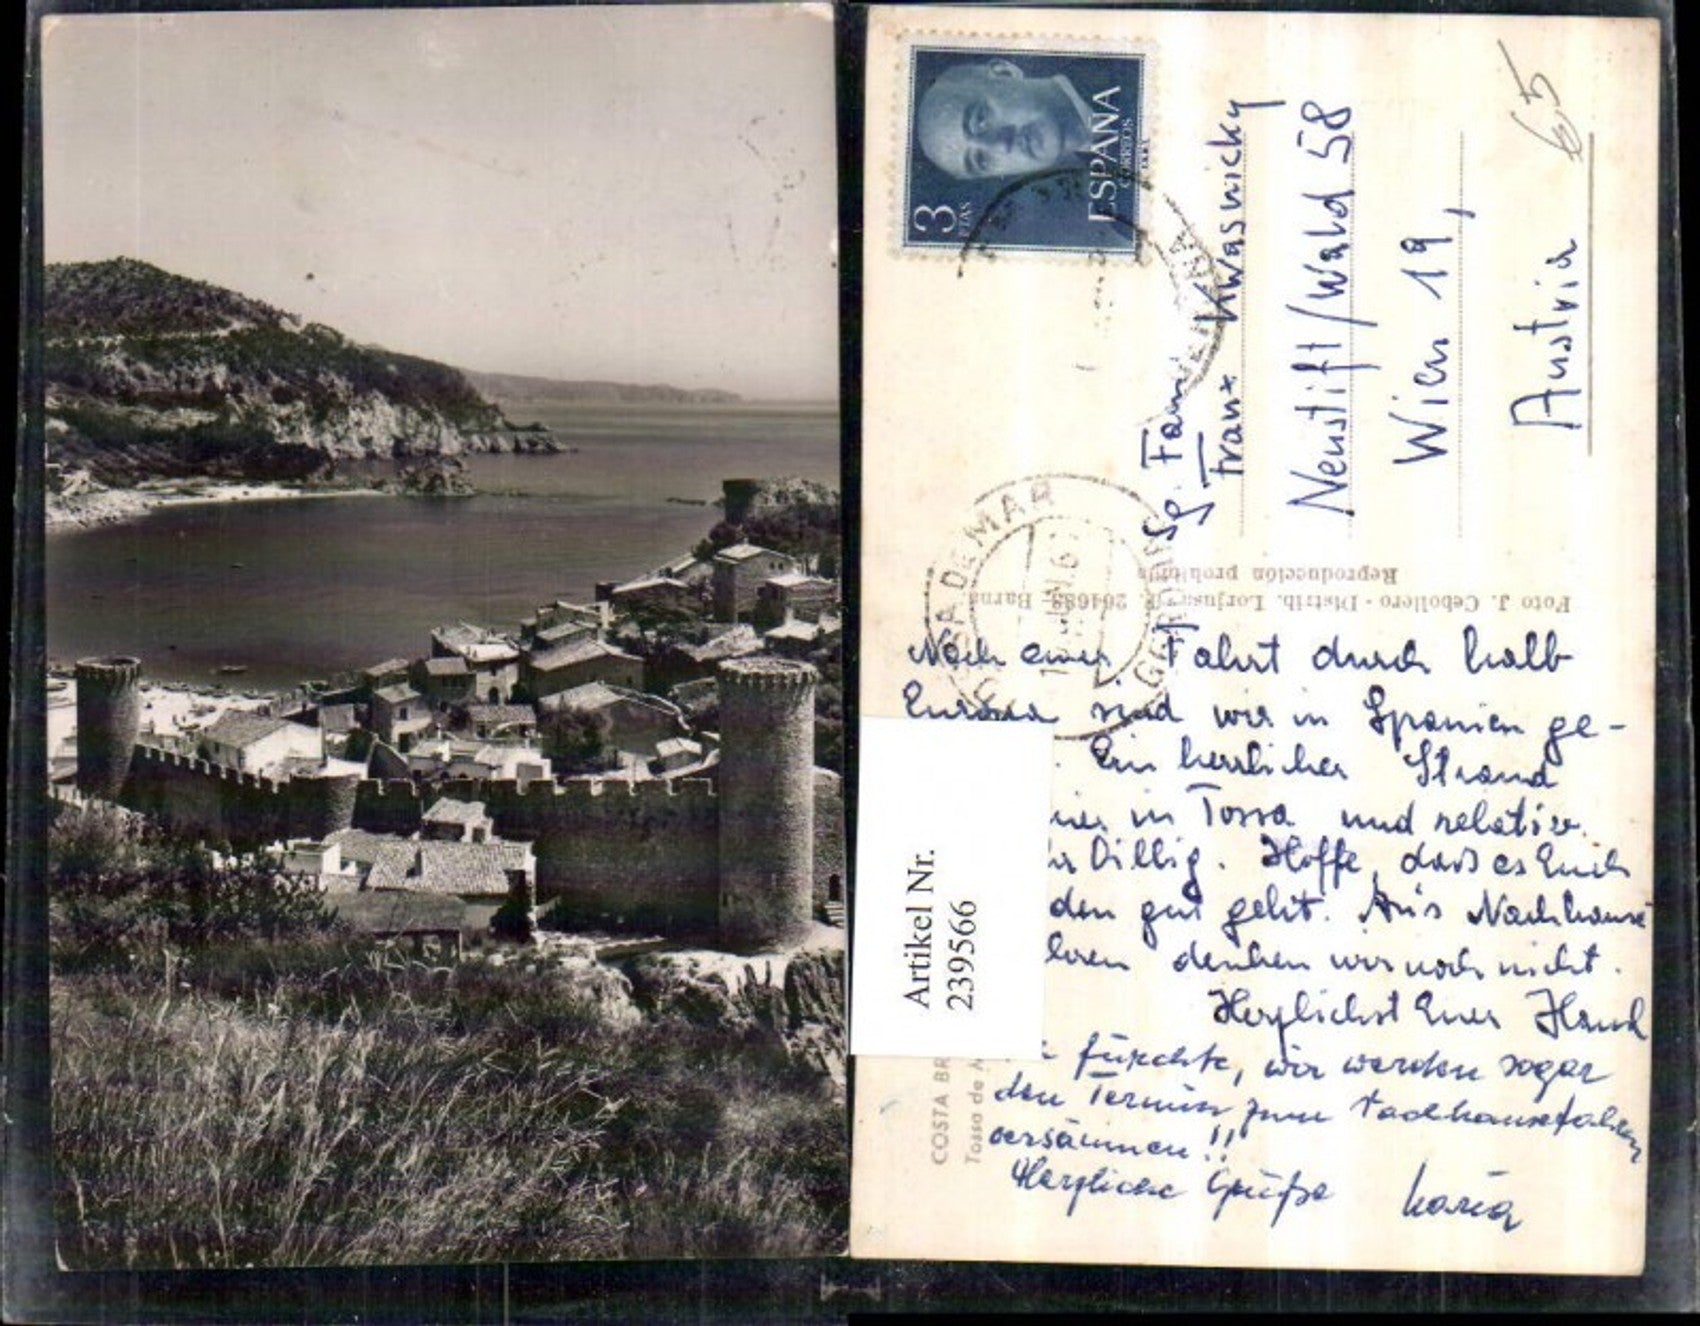 3
PTAS
ESPAÑA
CORREOS
65
Sg. Fam.
Franz Kwasnicky
Neustift/Wald 58
Wien 19,
Austria
SA DE MAR
GERONA
JUN. 6
Foto J. Cebollero - Distrib. Lorjusa - Barna
Reproducción prohibida
Nach einer Fahrt durch halb
Europa sind wir in Spanien ge-
Ein herrlicher Strand
in Tossa und relativ
billig. Hoffe, dass es Euch
den gut geht. An's Nachhause
denken wir noch nicht.
Herzlichst Euer Hans
fürchte, wir werden sogar
den Termin zum Nachhausefahren
versäumen!!
Herzliche Grüße Maria
Artikel Nr.
239566
COSTA BR
Tossa de